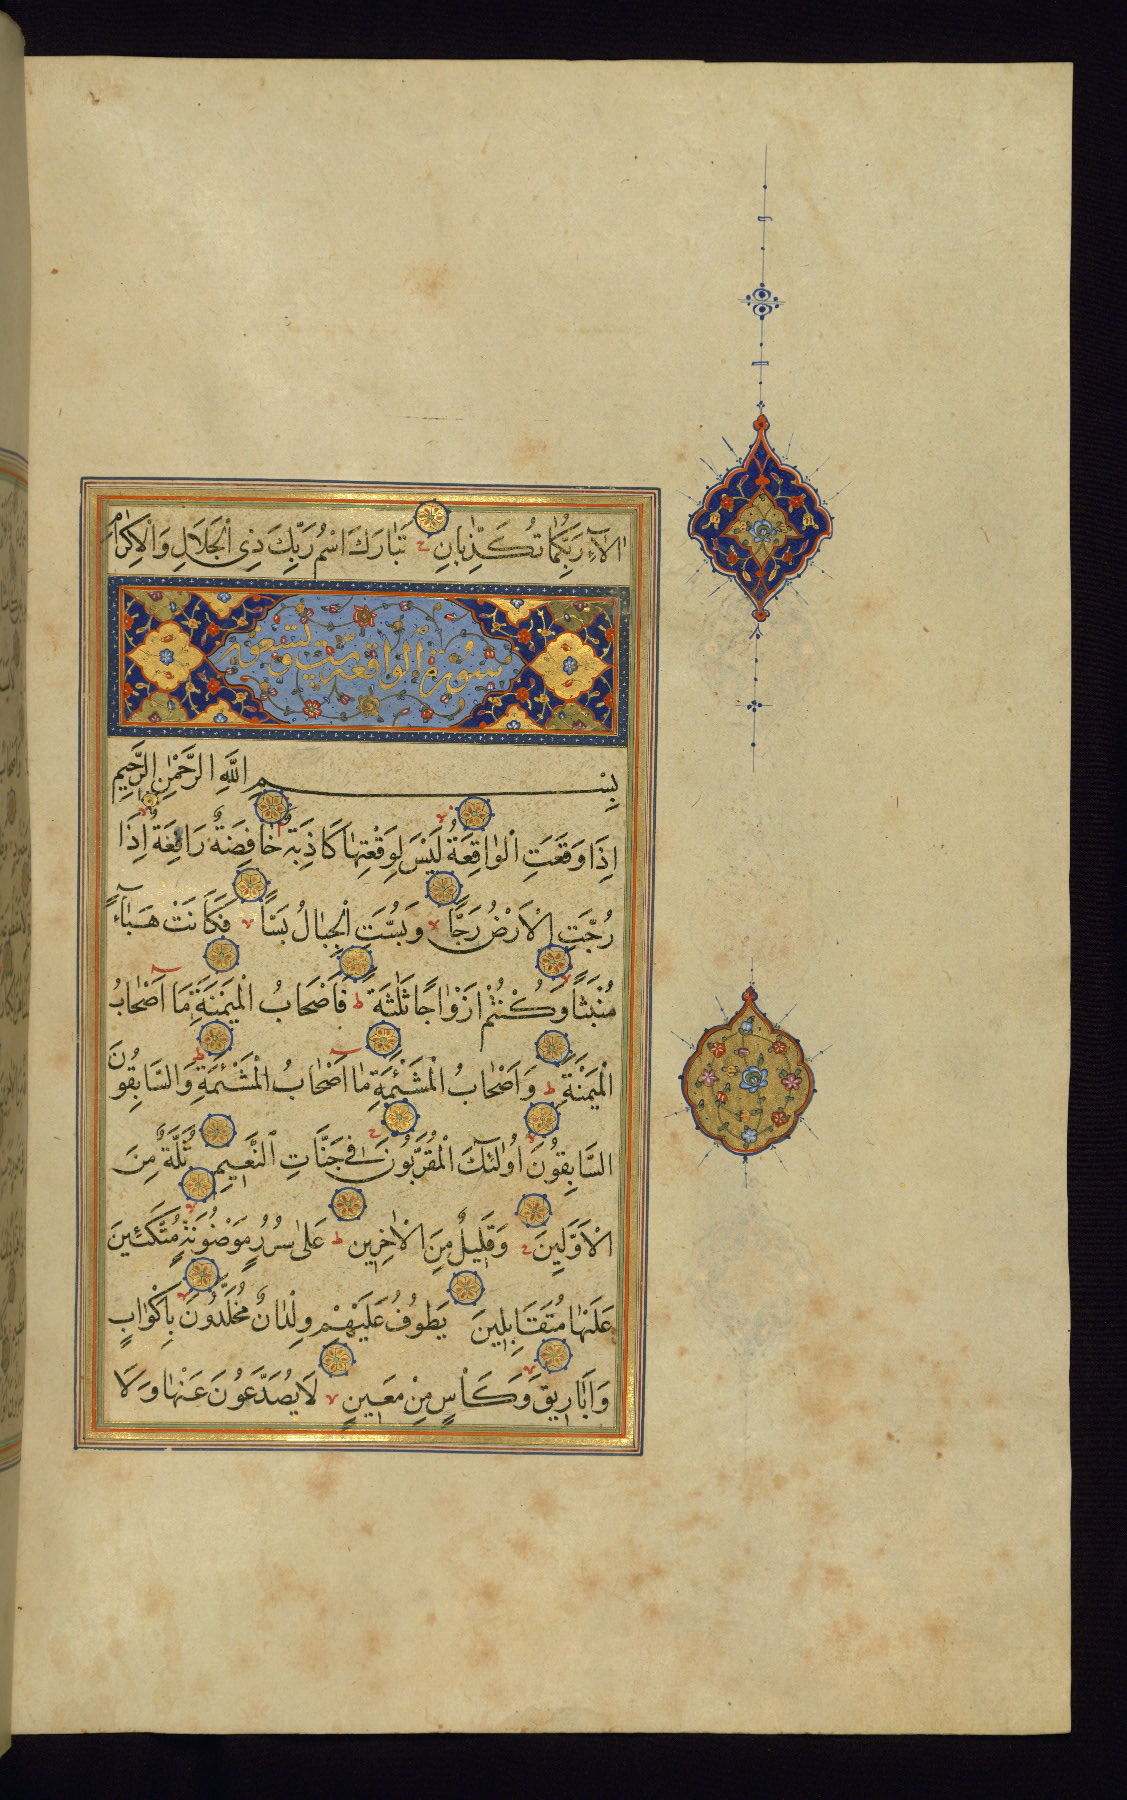 اٰلَآءِ رَبِّكُمٰا تُكَذِّبٰانِ تَبٰارَكَ اسْمُ رَبِّكَ ذِى الْجَلَالِ وَالْاِكْرٰامِ
سورة الواقعة ست وتسعون
بِسْمِ اللّٰهِ الرَّحْمٰنِ الرَّحِيمِ
اِذَا وَقَعَتِ الْوٰاقِعَةُ لَيْسَ لِوَقْعَتِهٰا كَاذِبَةٌ خٰافِضَةٌ رَافِعَةٌ اِذَا
رُجَّتِ الْاَرْضُ رَجًّا وَبُسَّتِ الْجِبٰالُ بَسًّا فَكَانَتْ هَبٰآءً
مُنْبَثًّا وَكُنْتُمْ اَزْوٰاجًا ثَلٰثَةً فَاَصْحَابُ الْمَيْمَنَةِ مَا اَصْحٰابُ
الْمَيْمَنَةِ وَاَصْحٰابُ الْمَشْئَمَةِ مٰا اَصْحٰابُ الْمَشْئَمَةِ وَالسَّابِقُونَ
السَّابِقُونَ اُولٰٓئِكَ الْمُقَرَّبُونَ فِى جَنَّاتِ النَّعِيمِ ثُلَّةٌ مِنَ
الْاَوَّلِينَ وَقَلِيلٌ مِنَ الْاٰخِرِينَ عَلىٰ سُرُرٍ مَوْضُونَةٍ مُتَّكَئِينَ
عَلَيْهٰا مُتَقَابِلِينَ يَطُوفُ عَلَيْهِمْ وِلْدٰانٌ مُخَلَّدُونَ بِاَكْوٰابٍ
وَاَبَارِيقَ وَكَاْسٍ مِنْ مَعِينٍ لَا يُصَدَّعُونَ عَنْهٰا وَلَا